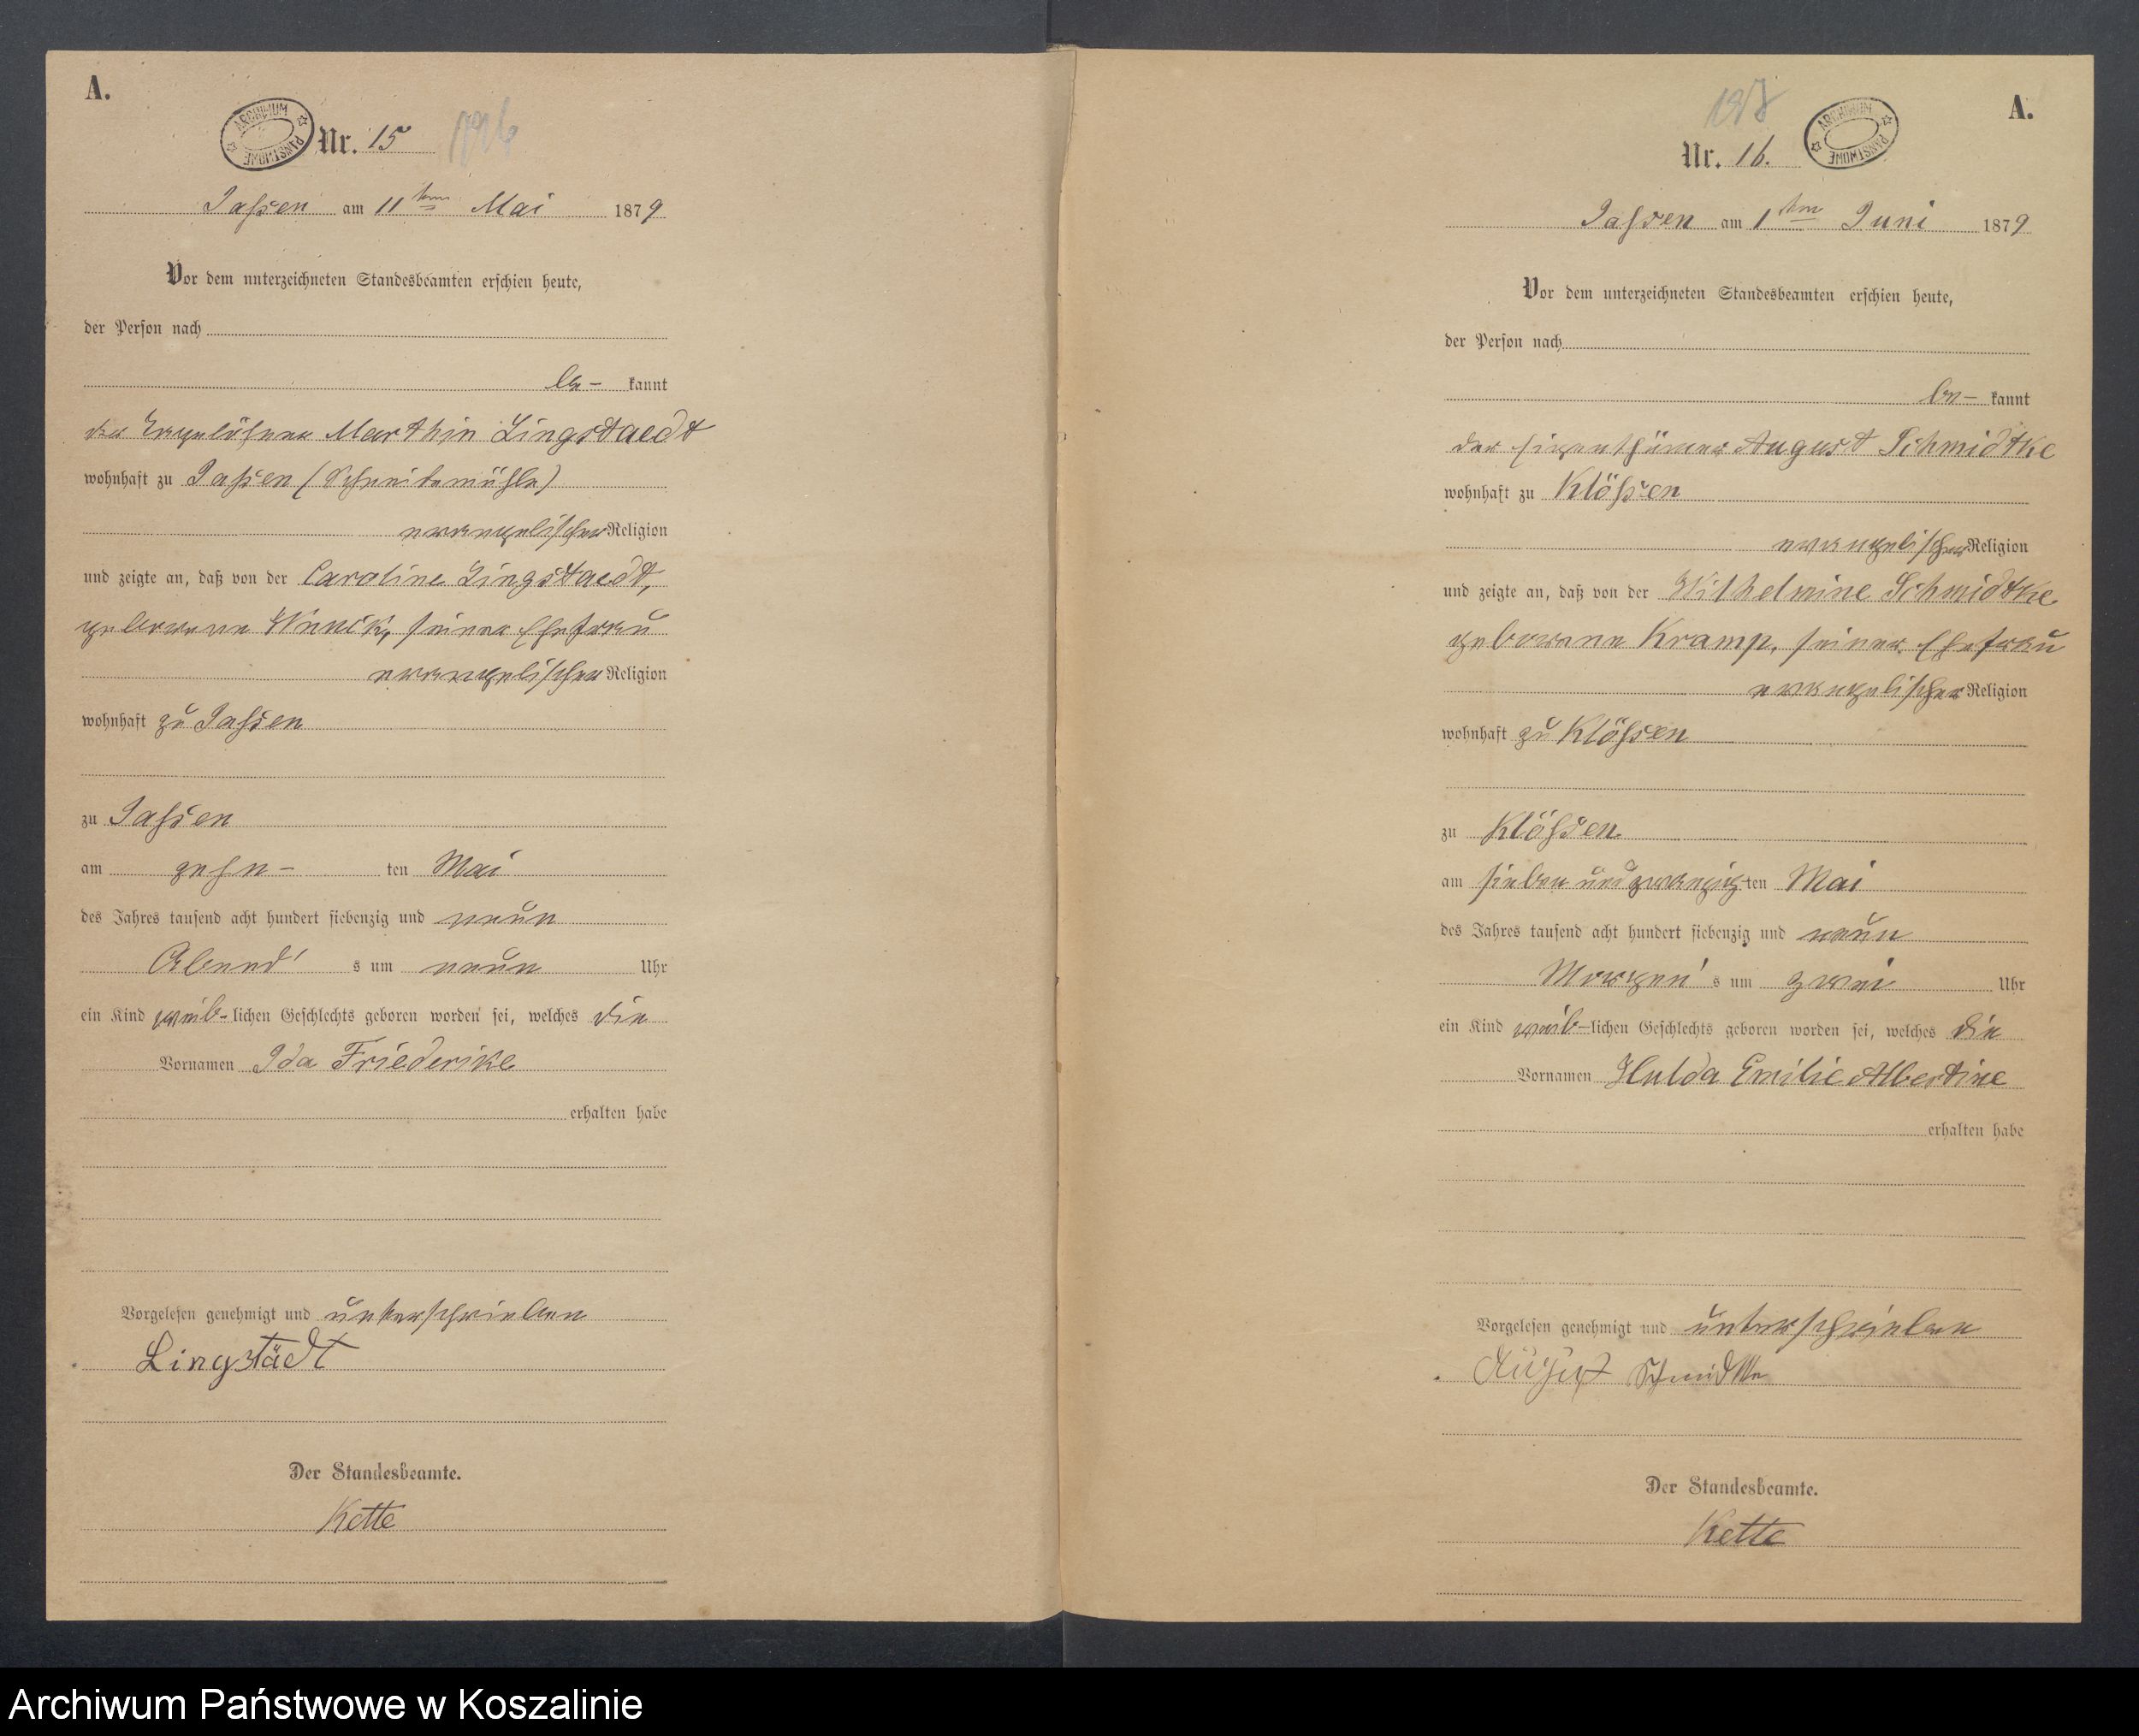 A.
ARCHIWUM PAŃSTWOWE
Nr. 15
Jassen am 11ten Mai 1879
Vor dem unterzeichneten Standesbeamten erschien heute,
der Person nach
be- kannt
der Tagelöhner Marthin Lingstaedt
wohnhaft zu Jassen (Schneidemühle)
evangelischer Religion
und zeigte an, daß von der Caroline Lingstaedt,
geborene seiner Ehefrau
evangelischer Religion
wohnhaft zu Jassen
zu Jassen
am zehn- ten Mai
des Jahres tausend acht hundert siebenzig und neun
Abend's um neun Uhr
ein Kind weib-lichen Geschlechts geboren worden sei, welches die
Vornamen Ida Friederike
erhalten habe
Vorgelesen genehmigt und unterschrieben
Lingstädt
Der Standesbeamte.
Kette
A.
ARCHIWUM PAŃSTWOWE
Nr. 16.
Jassen am 1ten Juni 1879
Vor dem unterzeichneten Standesbeamten erschien heute,
der Person nach
be- kannt
der Eigenthümer August Schmidtke
wohnhaft zu Klößen
evangelischer Religion
und zeigte an, daß von der Wilhelmine Schmidtke
geborene Kramp, seiner Ehefrau
evangelischer Religion
wohnhaft zu Klößen
zu Klößen
am sieben und zwanzig-ten Mai
des Jahres tausend acht hundert siebenzig und neun
Morgen's um zwei Uhr
ein Kind weib-lichen Geschlechts geboren worden sei, welches die
Vornamen Hulda Emilie Albertine
erhalten habe
Vorgelesen genehmigt und unterschrieben
August Schmidtke
Der Standesbeamte.
Kette
Archiwum Państwowe w Koszalinie